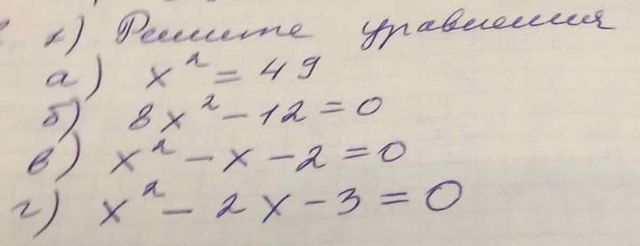 1) Решите уравнения
а) x² = 49
б) 8x² - 12 = 0
в) x² - x - 2 = 0
г) x² - 2x - 3 = 0